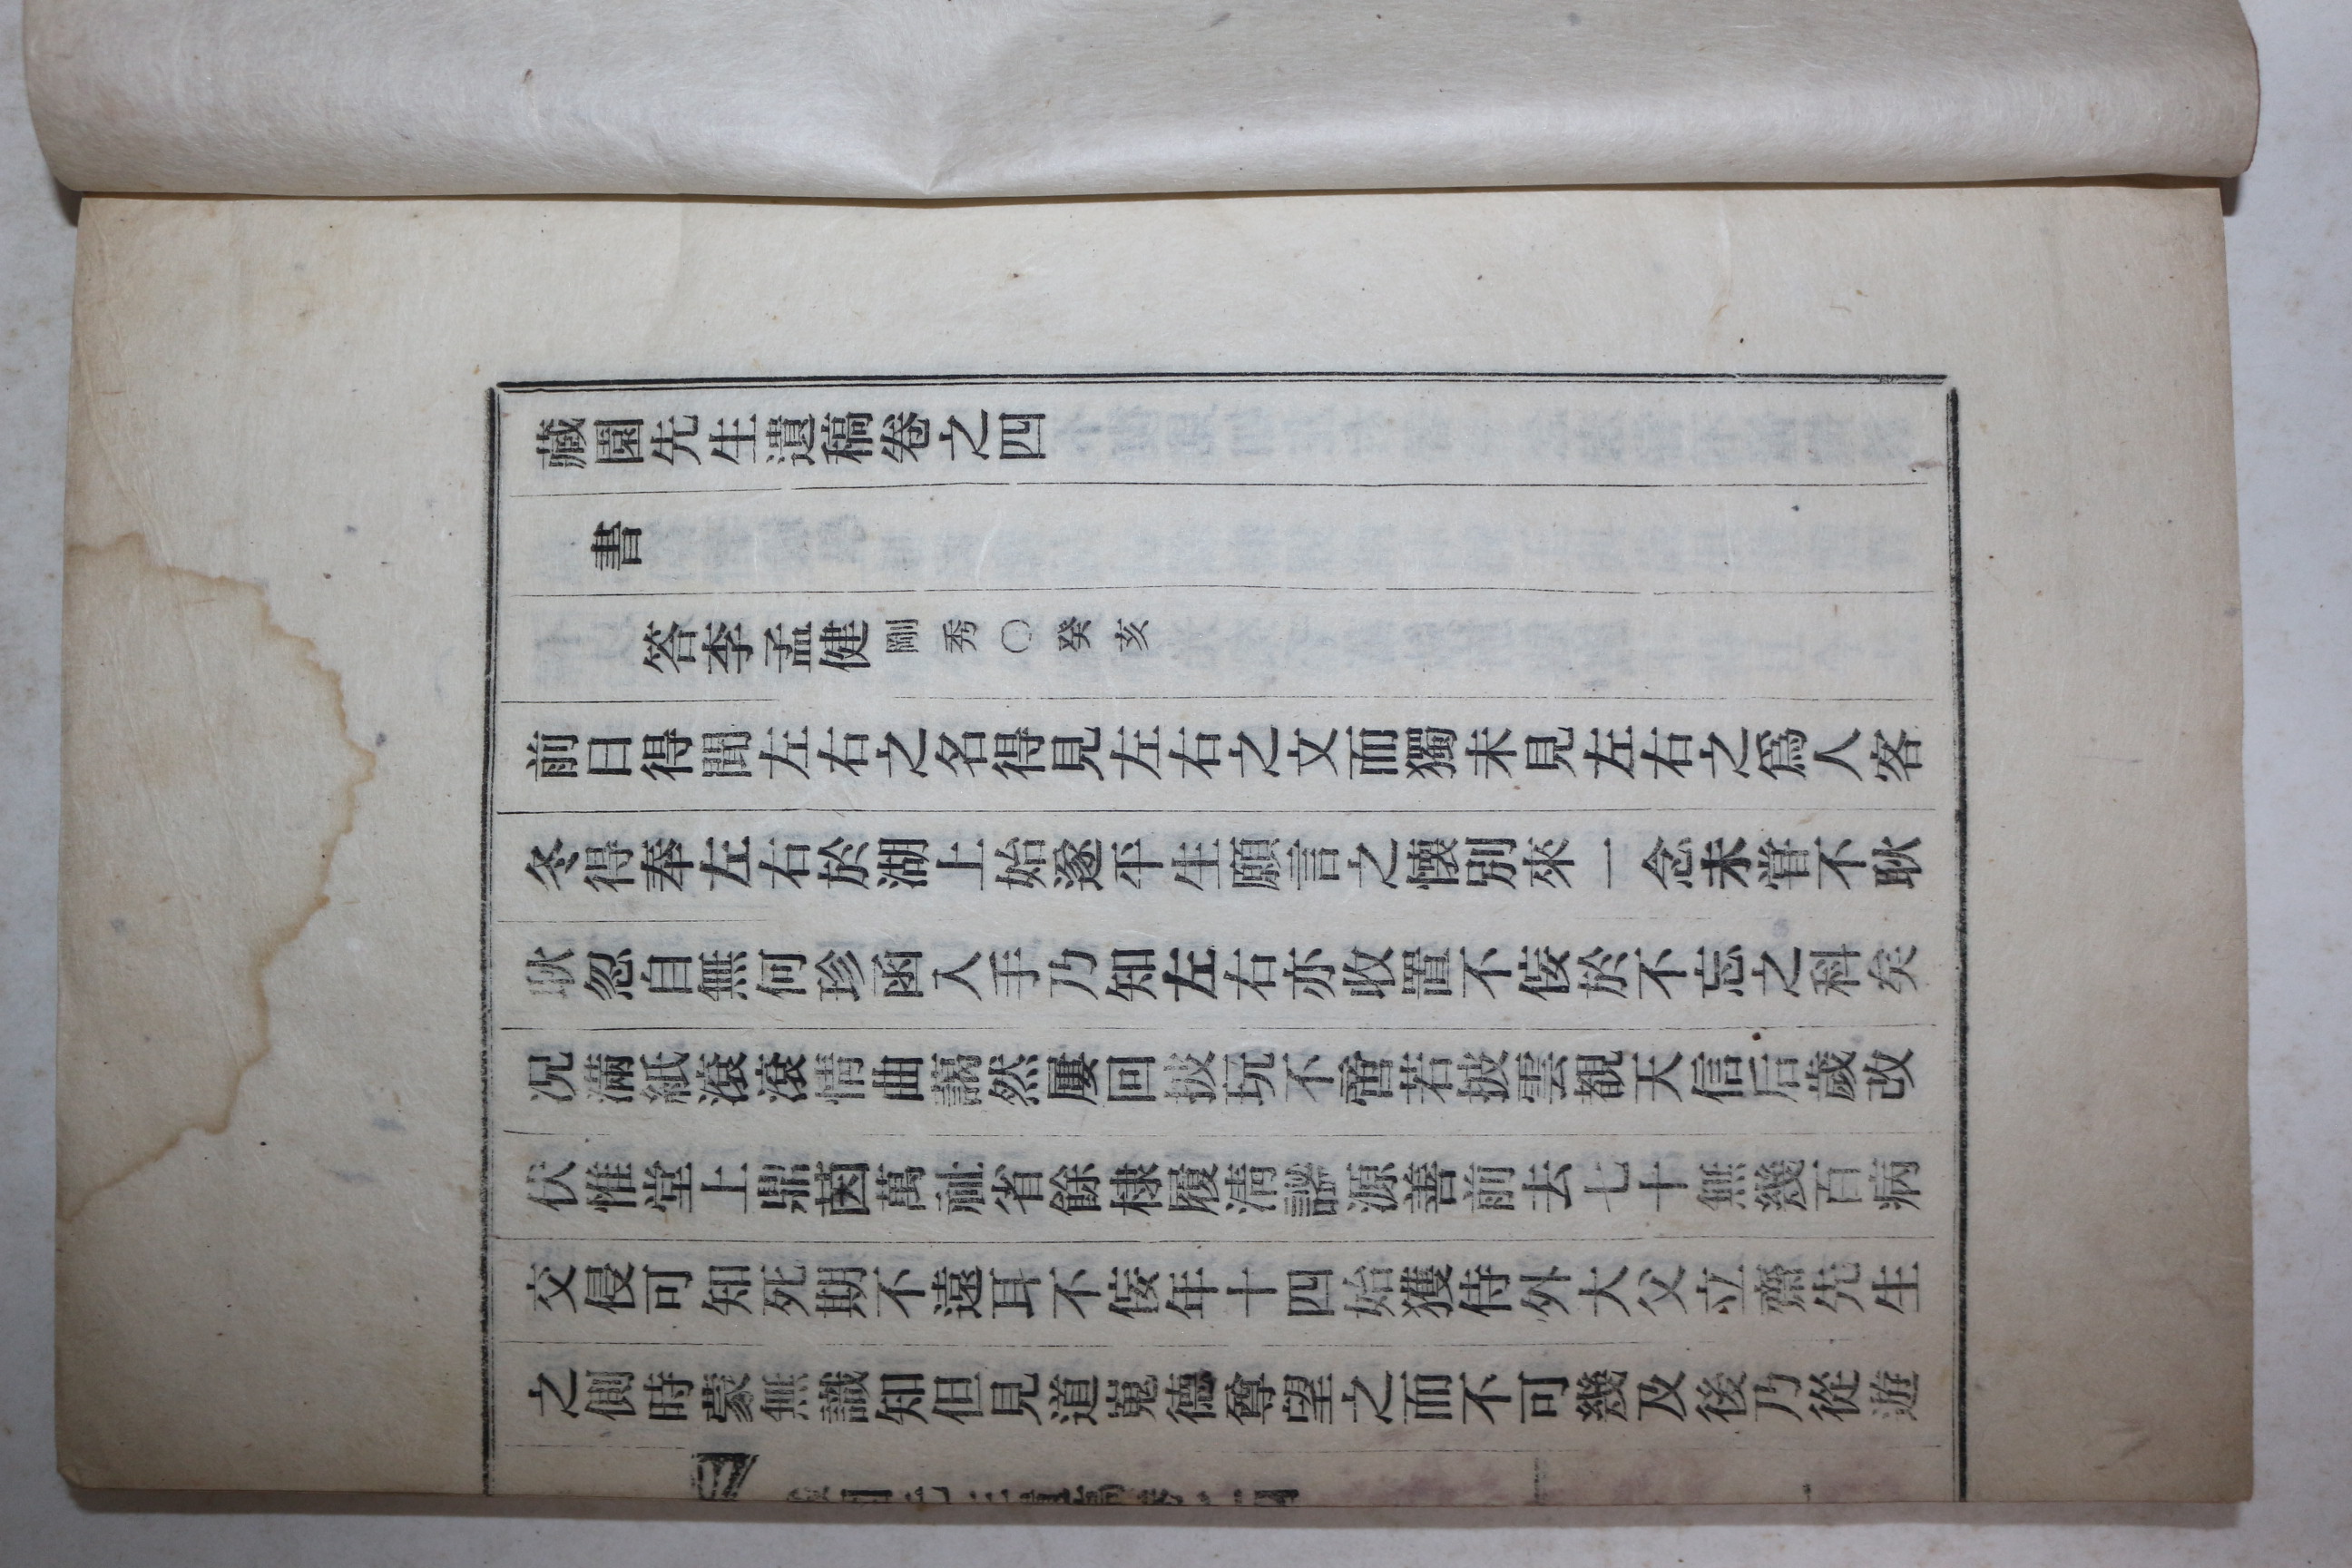 藏園先生遺稿卷之四
書
答李孟健剛秀〇癸亥
前日得聞左右之名得見左右之文而獨未見左右之爲人客
冬得奉左右於湖上始遂平生願言之懷別來一念未嘗不耿
耿忽自無何珍函入手乃知左右亦收置不佞於不忘之科矣
况滿紙滾滾情曲藹然屢回披玩不啻若披雲覩天信后歲改
伏惟堂上鼎茵萬祉省餘棣履淸謐源善前去七十無幾百病
交侵可知死期不遠耳不佞年十四始獲侍外大父立齋先生
之側時蒙無識知但見道嵬德尊望之而不可幾及後乃從遊